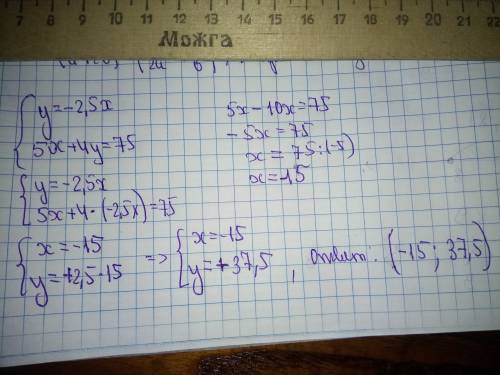 7 8 9 10 11 12 13 14 15 16 17 18 19 20 21 22
Можга
y=-2,5x
5x+4y=75
5x-10x=75
-5x=75
x=75:(-5)
x=-15
y=-2,5x
5x+4·(-2,5x)=75
x=-15
y=+2,5·15
=> x=-15
y=+37,5, ответ: (-15; 37,5)